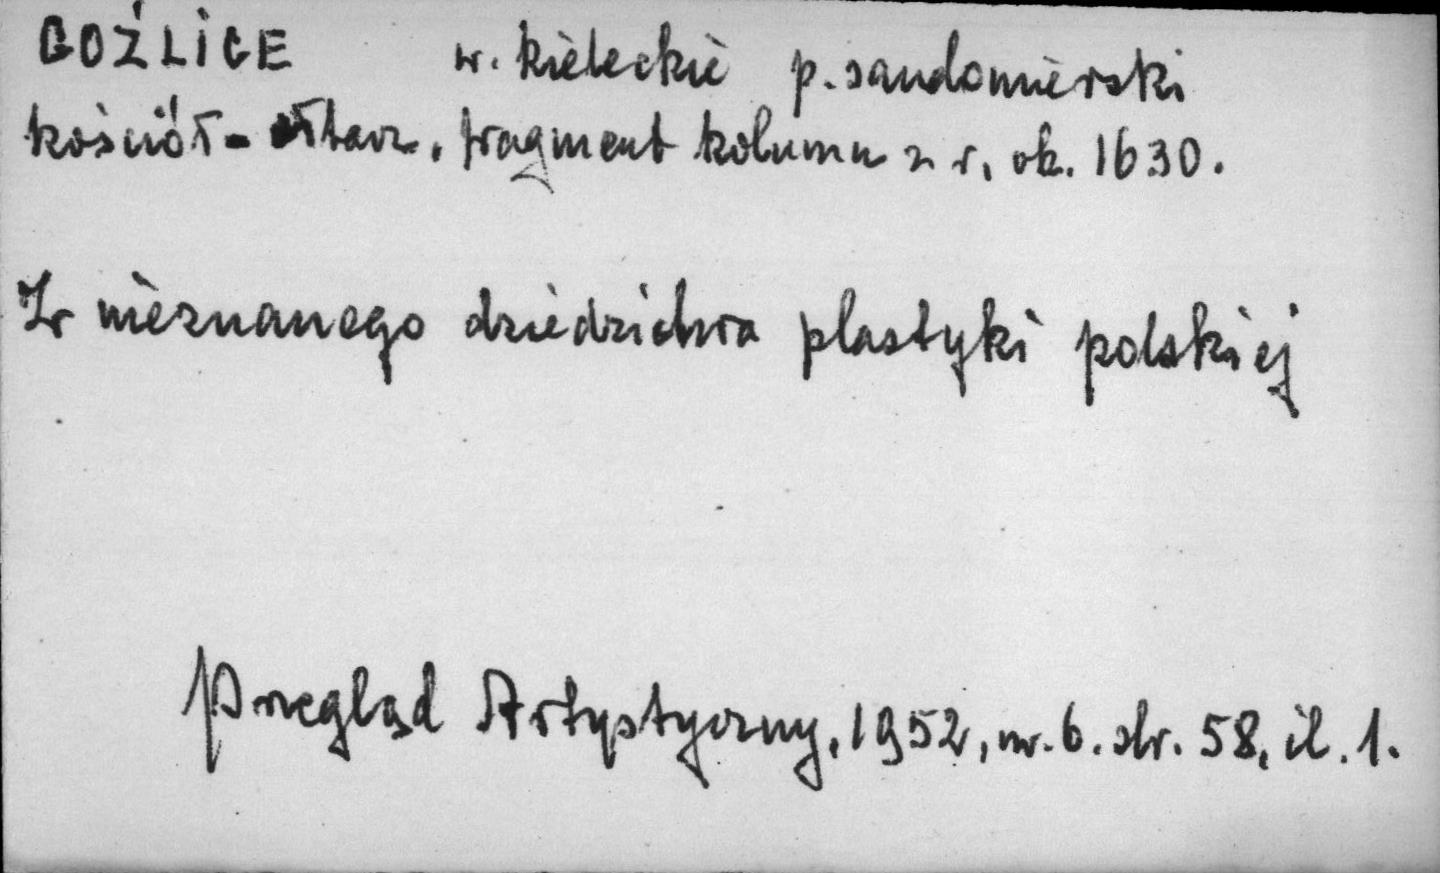 GOŹLICE w. kieleckie p. sandomierski
kościół - ołtarz, fragment kolumn z r. ok. 1630.
Z nieznanego dziedzictwa plastyki polskiej
Przegląd Artystyczny, 1952, nr. 6. str. 58, il. 1.